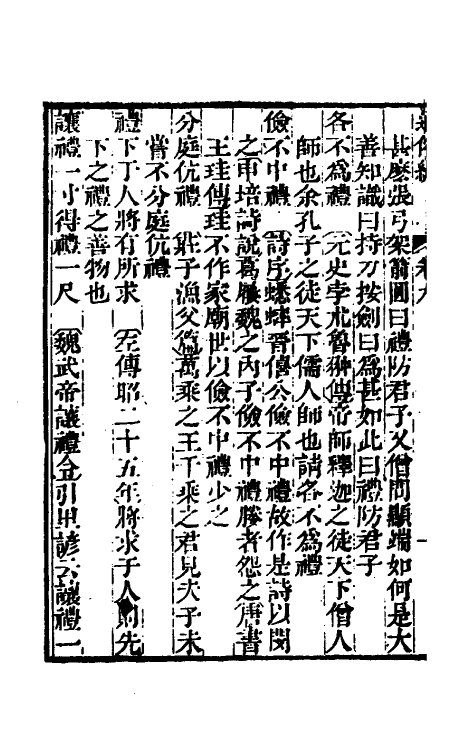 甚麽張弓架箭圓曰禮防君子又僧問顯端如何是大
善知識曰持刀按劍曰爲甚如此曰禮防君子
各不爲禮 元史孛朮魯翀傳帝師釋迦之徒天下僧人
師也余孔子之徒天下儒人師也請各不爲禮
儉不中禮 詩序蟋蟀晉僖公儉不中禮故作是詩以閔
之申培詩說葛屨魏之內子儉不中禮媵者怨之唐書
王珪傳珪不作家廟世以儉不中禮少之
分庭伉禮 莊子漁父篇萬乘之王千乘之君見夫子未
嘗不分庭伉禮
禮下于人將有所求 左傳昭二十五年將求于人則先
下之禮之善物也
讓禮一寸得禮一尺 魏武帝讓禮令引里諺云讓禮一